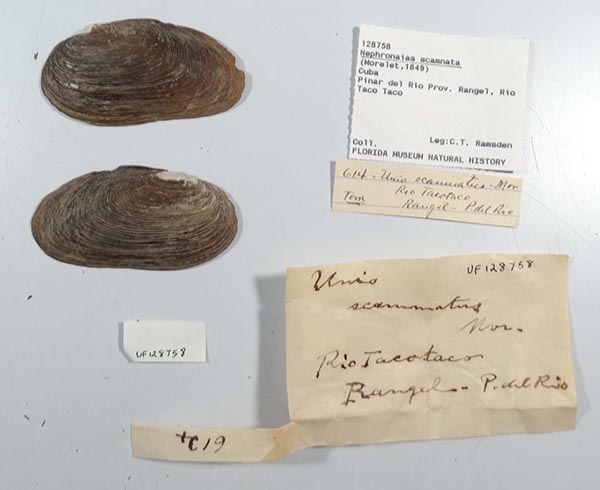 128758
Nephronaias scamnata
(Morelet,1849)
Cuba
Pinar del Rio Prov. Rangel, Rio
Taco Taco
Coll. Leg:C.T. Ramsden
FLORIDA MUSEUM NATURAL HISTORY
614 - Unio scammatus - Mor
Rio Tacotaco
Tom Rangel - P.del Rio
UF128758
Unio
scammatus
Mor.
Rio Tacotaco
Rangel - P. del Rio
UF128758